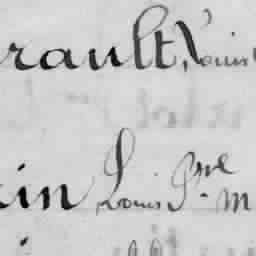 rault, Louis
in Louis P.re m